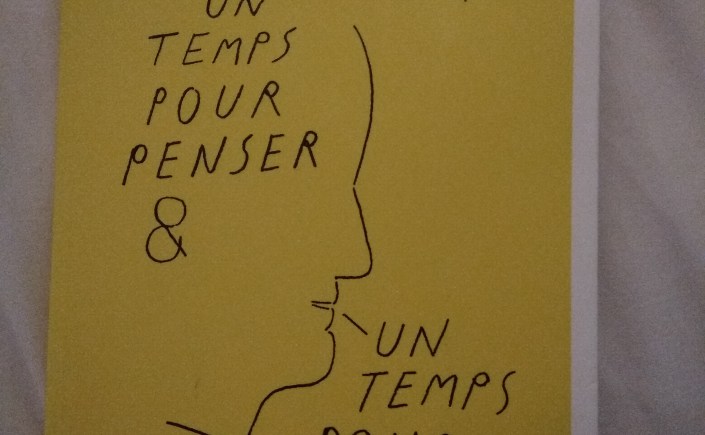 UN
TEMPS
POUR
PENSER
&
UN
TEMPS
POUR